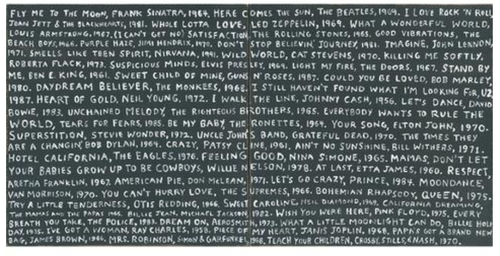 FLY ME TO THE MOON, FRANK SINATRA, 1964. HERE COMES THE SUN, THE BEATLES, 1969. I LOVE ROCK 'N ROLL
JOAN JETT & THE BLACKHEARTS, 1981. WHOLE LOTTA LOVE, LED ZEPPELIN, 1969. WHAT A WONDERFUL WORLD,
LOUIS ARMSTRONG, 1967. (I CAN'T GET NO) SATISFACTION, THE ROLLING STONES, 1965. GOOD VIBRATIONS, THE
BEACH BOYS, 1966. PURPLE HAZE, JIMI HENDRIX, 1971. DON'T STOP BELIEVIN', JOURNEY, 1981. IMAGINE, JOHN LENNON,
1971. SMELLS LIKE TEEN SPIRIT, NIRVANA, 1991. WILD WORLD, CAT STEVENS, 1970. KILLING ME SOFTLY,
ROBERTA FLACK, 1973. SUSPICIOUS MINDS, ELVIS PRESLEY, 1969. LIGHT MY FIRE, THE DOORS, 1967. STAND BY
ME, BEN E. KING, 1961. SWEET CHILD OF MINE, GUNS N' ROSES, 1987. COULD YOU BE LOVED, BOB MARLEY,
1980. DAYDREAM BELIEVER, THE MONKEES, 1968. I STILL HAVEN'T FOUND WHAT I'M LOOKING FOR, U2,
1987. HEART OF GOLD, NEIL YOUNG, 1972. I WALK THE LINE, JOHNNY CASH, 1956. LET'S DANCE, DAVID
BOWIE, 1983. UNCHAINED MELODY, THE RIGHTEOUS BROTHERS, 1965. EVERYBODY WANTS TO RULE THE
WORLD, TEARS FOR FEARS, 1985. BE MY BABY, THE RONETTES, 1964. YOUR SONG, ELTON JOHN, 1970.
SUPERSTITION, STEVIE WONDER, 1972. UNCLE JOHN'S BAND, GRATEFUL DEAD, 1970. THE TIMES THEY
ARE A CHANGIN', BOB DYLAN, 1964. CRAZY, PATSY CLINE, 1961. AIN'T NO SUNSHINE, BILL WITHERS, 1971.
HOTEL CALIFORNIA, THE EAGLES, 1976. FEELING GOOD, NINA SIMONE, 1965. MAMAS, DON'T LET
YOUR BABIES GROW UP TO BE COWBOYS, WILLIE NELSON, 1978. AT LAST, ETTA JAMES, 1960. RESPECT,
ARETHA FRANKLIN, 1967. AMERICAN PIE, DON MCLEAN, 1971. LET'S GO CRAZY, PRINCE, 1984. MOONDANCE,
VAN MORRISON, 1970. YOU CAN'T HURRY LOVE, THE SUPREMES, 1966. BOHEMIAN RHAPSODY, QUEEN, 1975.
TRY A LITTLE TENDERNESS, OTIS REDDING, 1966. SWEET CAROLINE, NEIL DIAMOND, 1969. CALIFORNIA DREAMING,
THE MAMAS AND THE PAPAS, 1965. BILLIE JEAN, MICHAEL JACKSON, 1982. WISH YOU WERE HERE, PINK FLOYD, 1975. EVERY
BREATH YOU TAKE, THE POLICE, 1983. DREAM ON, AEROSMITH, 1973. WHAT A LITTLE MOONLIGHT CAN DO, BILLIE HOLI
DAY, 1935. I'VE GOT A WOMAN, RAY CHARLES, 1958. PIECE OF MY HEART, JANIS JOPLIN, 1968. PAPA'S GOT A BRAND NEW
BAG, JAMES BROWN, 1965. MRS. ROBINSON, SIMON & GARFUNKEL, 1968. TEACH YOUR CHILDREN, CROSBY, STILLS & NASH, 1970.